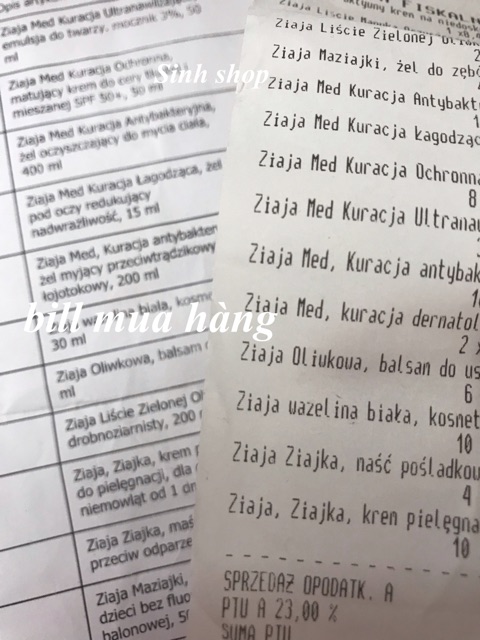 Opis
Ziaja Med Kuracja Ultranawilż
emulsja do twarzy, mocznik 3%, 50
ml
Ziaja Med Kuracja Ochronna,
matujący krem do cery tłustej i
mieszanej SPF 50+, 50 ml
Ziaja Med Kuracja Antybakteryjna,
żel oczyszczający do mycia ciała,
400 ml
Ziaja Med Kuracja Łagodząca, żel
pod oczy redukujący
nadwrażliwość, 15 ml
Ziaja Med, Kuracja antybakter
żel myjący przeciwtrądzikowy
łojotokowy, 200 ml
biała, kosm
30 ml
Ziaja Oliwkowa, balsam
ml
Ziaja Liście Zielonej Ol
drobnoziarnisty, 200
Ziaja, Ziajka, krem p
do pielęgnacji, dla
niemowląt od 1 dn
Ziaja Ziajka, maś
przeciw odparze
Ziaja Maziajki,
dzieci bez fluo
balonowej, 50
Sinh shop
bill mua hàng
FISKALN
Ziaja Liście
Ziaja Liście Zielonej Oliwk
2
Ziaja Maziajki, żel do zębó
Ziaja Med Kuracja Antybakt
1
Ziaja Med Kuracja Łagodząc
Ziaja Med Kuracja Ochronna
8
Ziaja Med Kuracja Ultranaw
Ziaja Med, Kuracja antybak
10
Ziaja Med, kuracja dernatol
2 x
Ziaja Oliukoua, balsan do us
6
Ziaja uazelina biała, kosnet
10
Ziaja Ziajka, naść pośladkou
4
Ziaja, Ziajka, kren pielęgna
10
SPRZEDAŻ OPODATK. A
PTU A 23,00 %
SUMA PTU